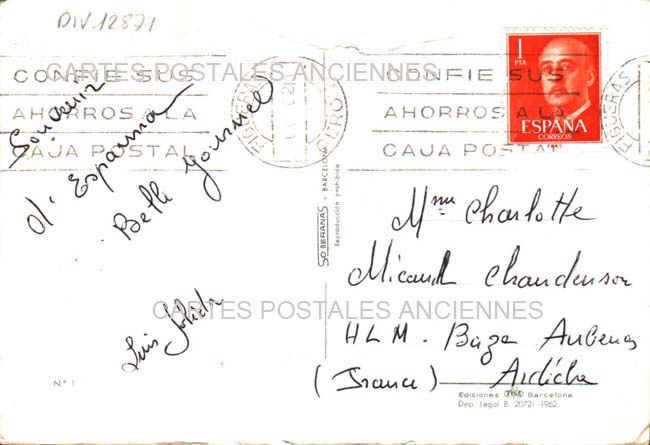 DIV.12871
CARTES POSTALES ANCIENNES
CONFIE SUS
AHORROS A LA
CAJA POSTAL
FIGUERAS
CONFIE SUS
AHORROS A LA
CAJA POSTAL
FIGUERAS
1
PTA
ESPAÑA
CORREOS
Souvenir
d'Espanna
Belle Journée
Luis
SOBERANAS - BARCELONA
Reproducción prohibida
Mme Charlotte
Chandenson
CARTES POSTALES ANCIENNES
HLM. Aubenas
Ardèche
(France)
N.º 1
Ediciones Barcelona
Dep. legal B. 20721-1962